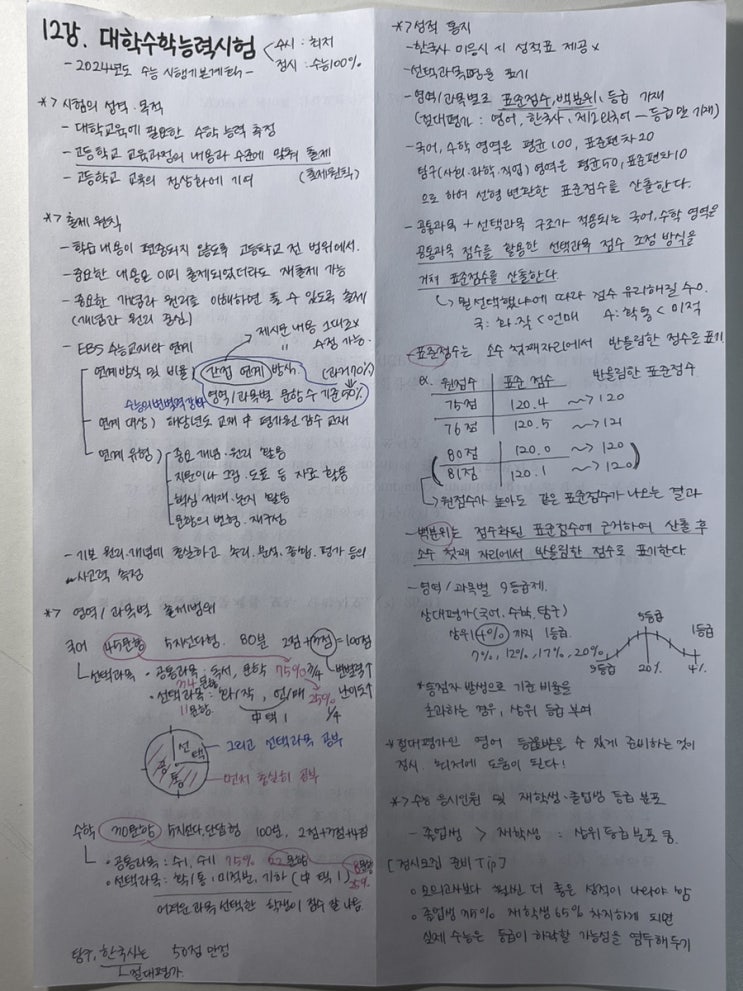 12강. 대학수학능력시험 < 수시 : 최저
정시 : 수능100%
- 2024년도 수능 시행기본계획 -
*> 시험의 성격·목적
- 대학교육에 필요한 수학 능력 측정
- 고등학교 교육과정의 내용과 수준에 맞춰 출제
- 고등학교 교육의 정상화에 기여 (출제원칙)
*> 출제 원칙
- 학습 내용이 편중되지 않도록 고등학교 전 범위에서.
- 중요한 내용은 이미 출제되었더라도 재출제 가능
- 중요한 개념과 원리를 이해하면 풀 수 있도록 출제
(개념과 원리 중심)
- EBS 수능교재와 연계
제시문 내용 그대로x
" 수정 가능.
연계방식 및 비율) 간접 연계 방식 (과거70%)
영역/과목별 문항 수 기준 50%
연계 대상) 해당년도 교재 中 평가원 감수 교재
연계 유형) 중요 개념·원리 활용
지문이나 그림·도표 등 자료 활용
핵심 제재·논지 활용
문항의 변형·재구성
- 기본 원리·개념에 충실하고 추리·분석·종합·평가 등의
사고력 측정
*> 영역/과목별 출제범위
국어 45문항 5지선다형. 80분 2점+3점=100점
선택과목 • 공통과목 : 독서, 문학 75% 3/4
34문항
• 선택과목 : 화/작, 언/매 25% 난이도↑
11문항 中 택 1 1/4
선택 그리고 선택과목 공부
공통 먼저 충실히 공부
수학 30문항 5지선다, 단답형 100분, 2점+3점+4점
• 공통과목 : 수1, 수11 75% 22문항
8문항
• 선택과목 : 확/통, 미적분, 기하 (中 택 1) 25%
어려운 과목 선택한 학생이 점수 잘 나옴
탐구, 한국사는 50점 만점
절대평가
*> 성적 통지
- 한국사 미응시 시 성적표 제공 x
- 선택과목명을 표기
- 영역/과목별로 표준점수, 백분위, 등급 기재
(절대평가 : 영어, 한국사, 제2외국어 — 등급만 기재)
- 국어, 수학 영역은 평균100, 표준편차20
탐구(사회·과학·직업) 영역은 평균50, 표준편차10
으로 하여 선형 변환한 표준점수를 산출한다.
- 공통과목 + 선택과목 구조가 적용되는 국어, 수학 영역은
공통과목 점수를 활용한 선택과목 점수 조정 방식을
거쳐 표준점수를 산출한다
뭘선택했냐에 따라 점수 유리해질 수o.
국: 화·작 < 언매 수: 확통 < 미적
- 표준점수는 소수 첫째자리에서 반올림한 정수로 표기
ex. 원점수 표준 점수 반올림한 표준점수
75점 120.4 ~> 120
76점 120.5 ~> 121
80점 120.0 ~> 120
81점 120.1 ~> 120
원점수가 높아도 같은 표준점수가 나오는 결과
- 백분위는 정수화된 표준점수에 근거하여 산출 후
소수 첫째 자리에서 반올림한 정수로 표기한다
- 영역/과목별 9등급제.
상대평가(국어, 수학, 탐구)
상위 4% 까지 1등급.
7%, 12%, 17%, 20%
5등급
1등급
9등급 20% 4%
* 동점자 발생으로 기준 비율을
초과하는 경우, 상위 등급 부여
* 절대평가인 영어 등급받을 수 있게 준비하는 것이
정시 최저에 도움이 된다!
*> 수능 응시인원 및 재학생·졸업생 등급 분포
- 졸업생 > 재학생 : 상위등급 분포 多.
[정시모집 준비 Tip]
○ 모의고사보다 훨씬 더 좋은 성적이 나와야 함
○ 졸업생 35% 재학생 65% 차지하게 되면
실제 수능은 등급이 하락할 가능성을 염두해두기